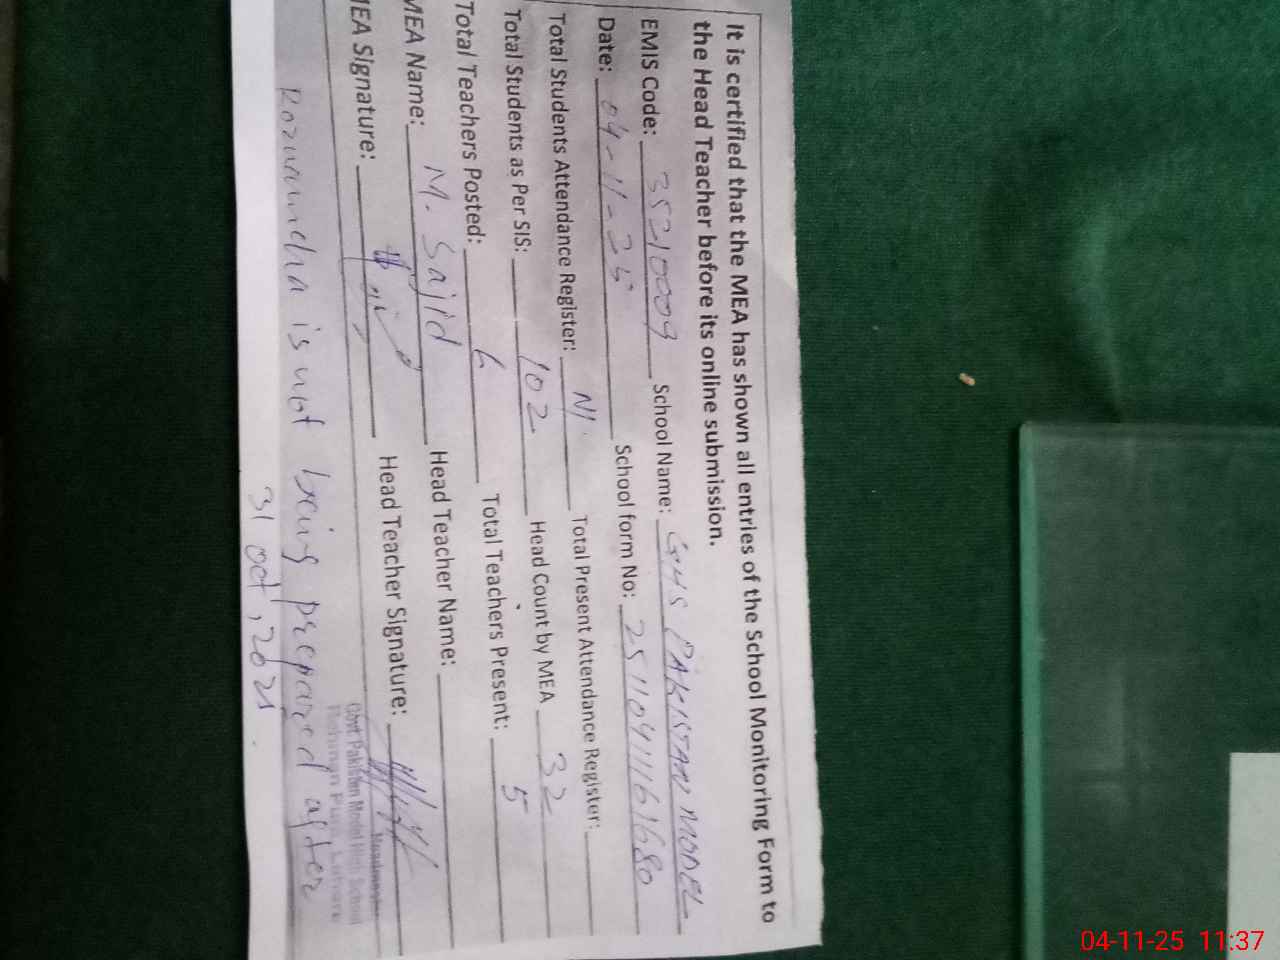 It is certified that the MEA has shown all entries of the School Monitoring Form to
the Head Teacher before its online submission.
EMIS Code: 35210009 School Name: GHS PAKISTAN MODEL
Date: 04-11-25 School form No: 2511041161680
Total Students Attendance Register: Nl Total Present Attendance Register:
Total Students as Per SIS: 102 Head Count by MEA 32
Total Teachers Posted: 6 Total Teachers Present: 5
MEA Name: M. Sajid Head Teacher Name:
MEA Signature: Head Teacher Signature:
Headmaster
Govt. Pakistan Model High School
Lahore
Roznamcha is not being prepared after
31 oct, 2021
04-11-25 11:37